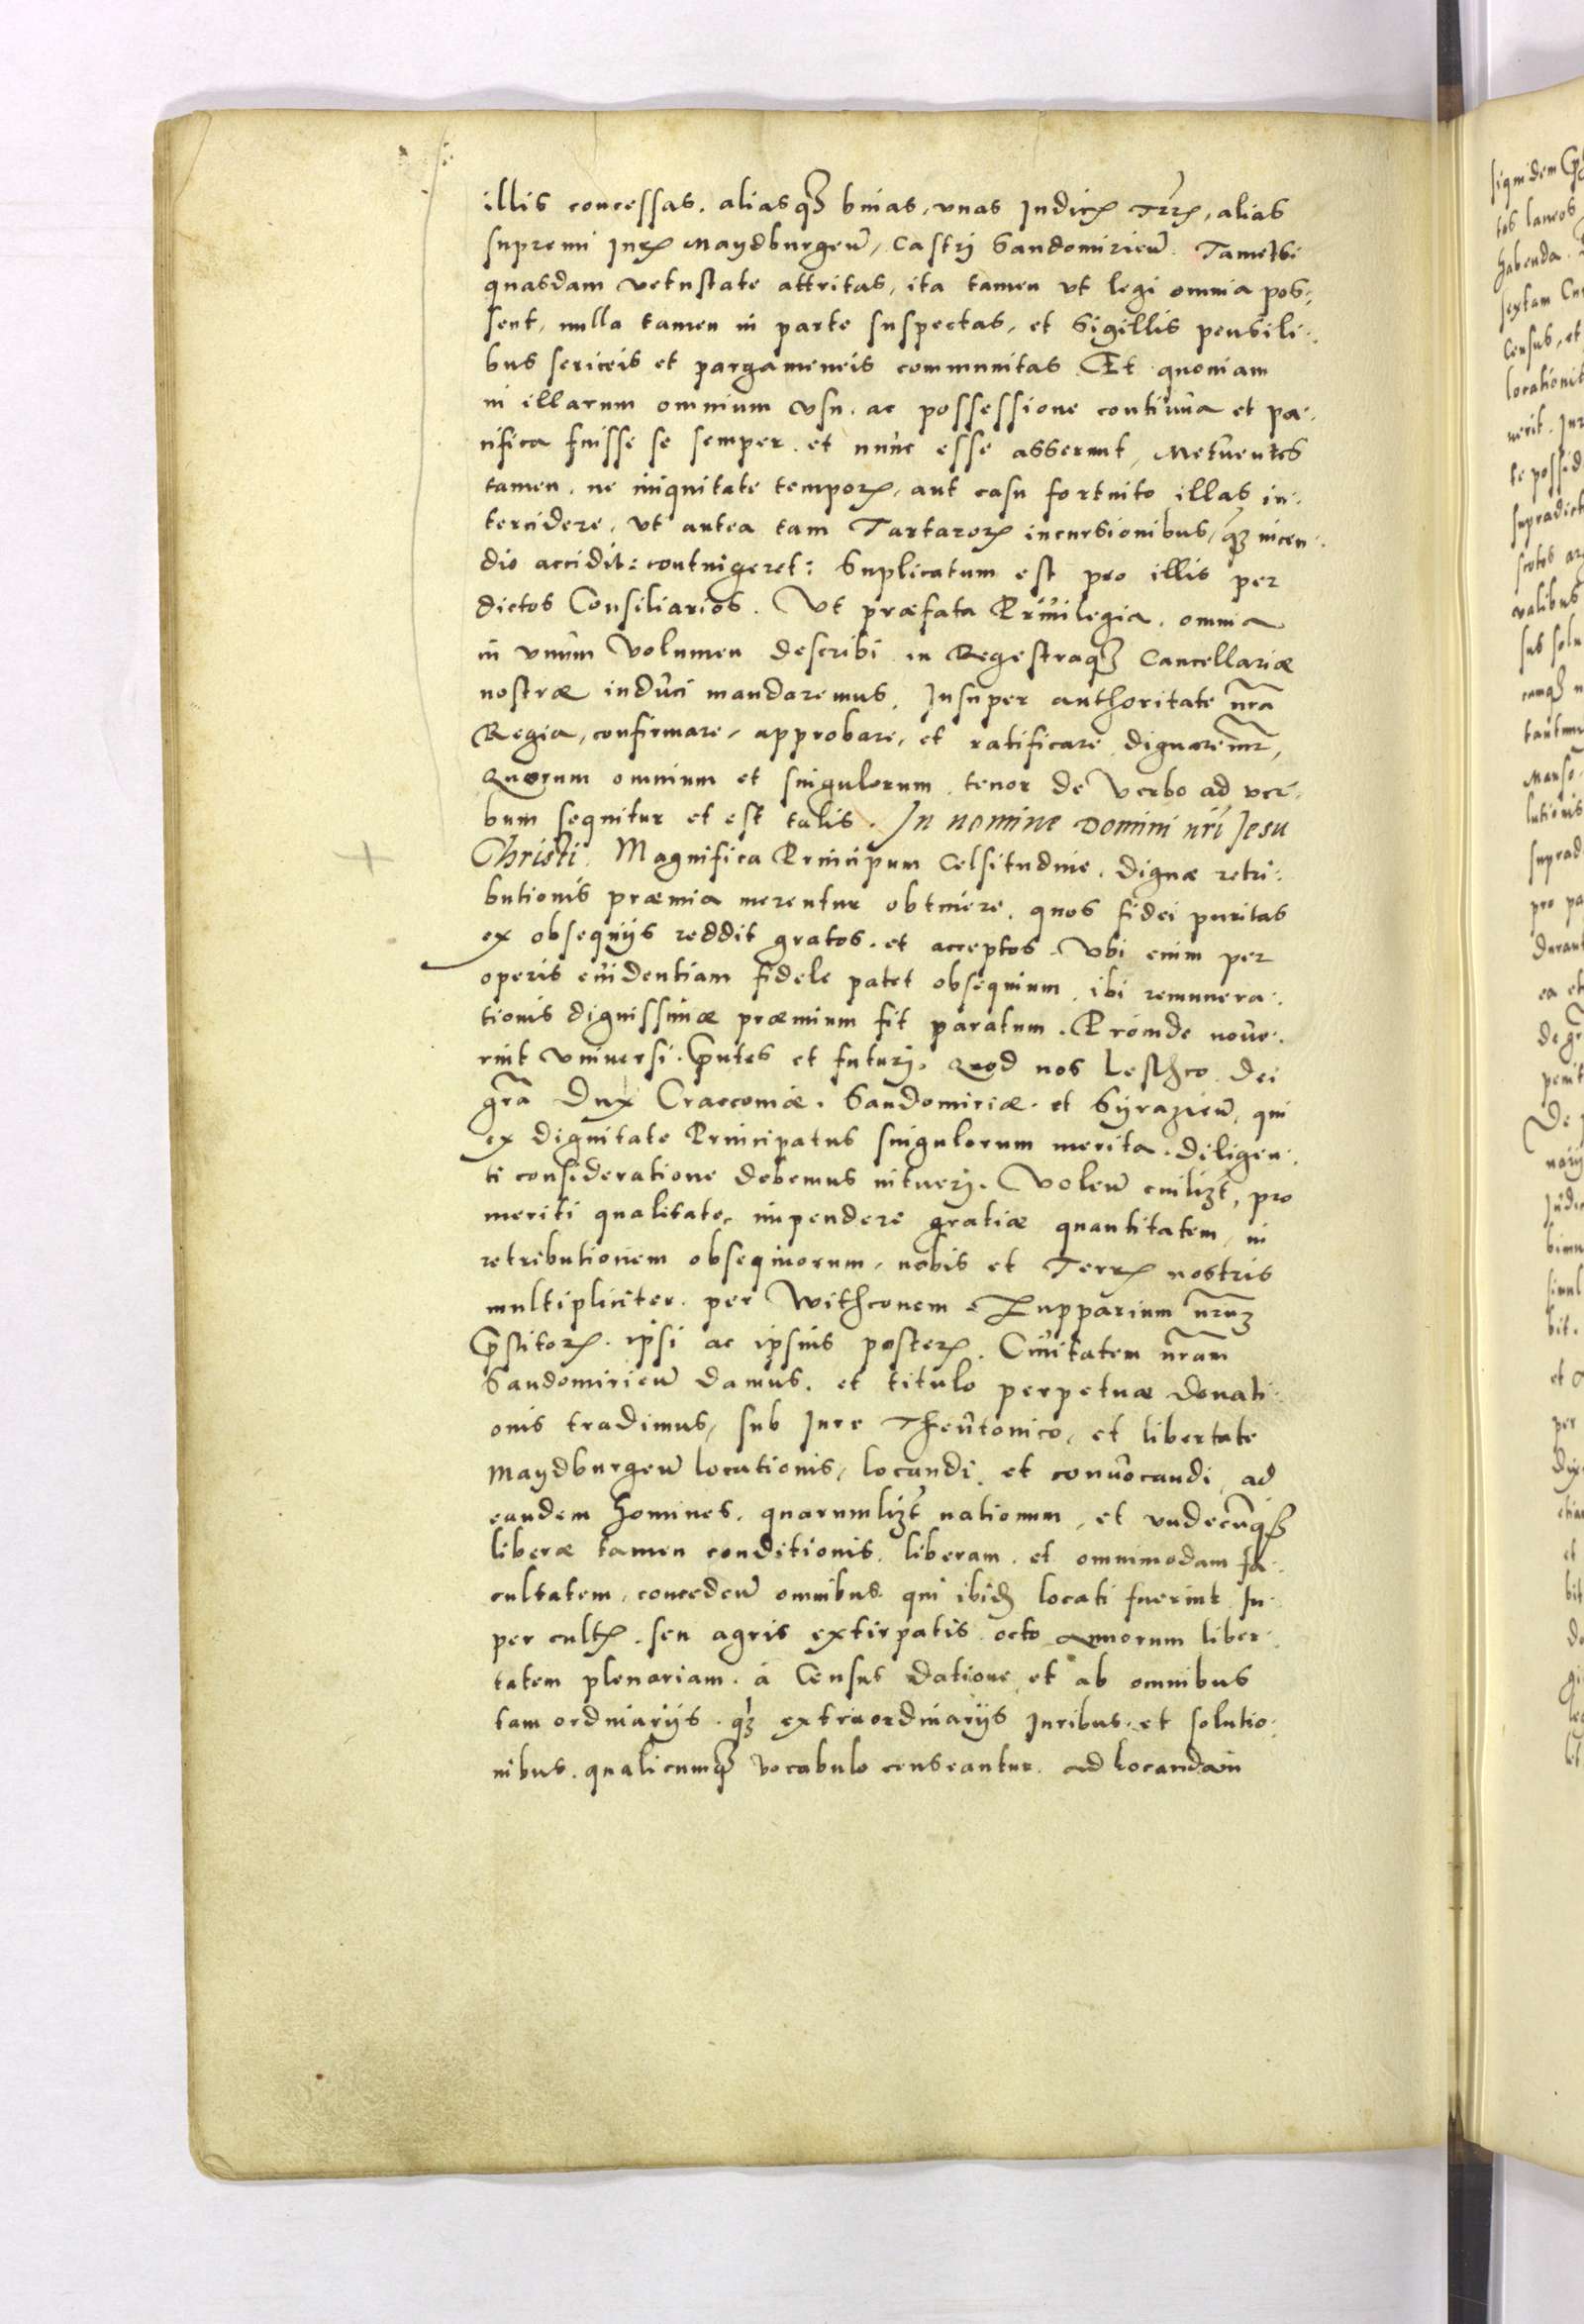 illis concessas. aliasqꝫ binas, vnas Iudicꝝ Trrꝝ, alias
supremi Iurꝝ Maydburgeñ, Castri Sandomirieñ. Tametsi
quasdam vetustate attritas, ita tamen vt legi omnia pos:
sent, nulla tamen in parte suspectas, et Sigillis pensili:
bus sericeis et pargameneis communitas Et quoniam
in illarum omnium vsu. ac possessione continua et pa:
cifica fuisse se semper. et nunc esse asserunt, Metuentes
tamen. ne iniquitate temporꝝ, aut casu fortuito illas in:
tercidere, vt antea tam Tartarorꝝ incursionibus, qꝫ incen:
dio accidit: contingeret: Suplicatum est pro illis per
dictos Consiliarios. Vt præfata Priuilegia. omnia
in vnum Volumen describi in Regestraqꝫ Cancellariæ
nostræ induci mandaremus, Insuper authoritate nr̃a
Regia, confirmare, approbare, et ratificare dignaremr̃,
Quorum omnium et singulorum tenor de Verbo ad ver:
bum sequitur et est talis. In nomine Domini nr̃i Jesu
Christi. Magnifica Principum Celsitudine. dignæ retri:
butionis præmia merentur obtinere. quos fidei puritas
ex obsequijs reddit gratos. et acceptos. Vbi enim per
operis euidentiam fidele patet obsequium, ibi remunera:
tionis dignissimæ præmium fit paratum. Proinde noue:
rint vniuersi. Pn̄tes et futurj. Quod nos Lesthco Dei
gr̃a Dux Craccouiæ. Sandomiriæ. et Syrazieñ, qui
ex dignitate Principatus singulorum merita. diligen:
ti consideratione debemus intuerj. Voleñ cuilizt, pro
meriti qualitate, impendere gratiæ quantitatem, in
retributionem obsequiorum, nobis et Terrꝝ nostris
multipliciter. per Withconem Zupparium nr̃uꝫ
Pr̃stitorꝝ. ipsi ac ipsius posterꝝ. Ciuitatem nr̃am
Sandomirieñ damus. et titulo perpetuæ donati:
onis tradimus, sub Iure Theutonico, et libertate
Maydburgeñ locationis, locandi. et conuocandi, ad
eandem homines. quarumlizt nationum, et vndecũqꝫ
liberæ tamen conditionis. liberam. et omnimodam fa:
cultatem, concedeñ omnibus. qui ibidꝫ locati fuerint In:
per cultꝝ. seu agris extirpatis octo annorum liber:
tatem plenariam. á Census datione, et ab omnibus
tam ordinarijs. qꝫ extraordinarijs Iuribus. et solutio:
nibus. qualicumqꝫ vocabulo censeantur. Ad locandam